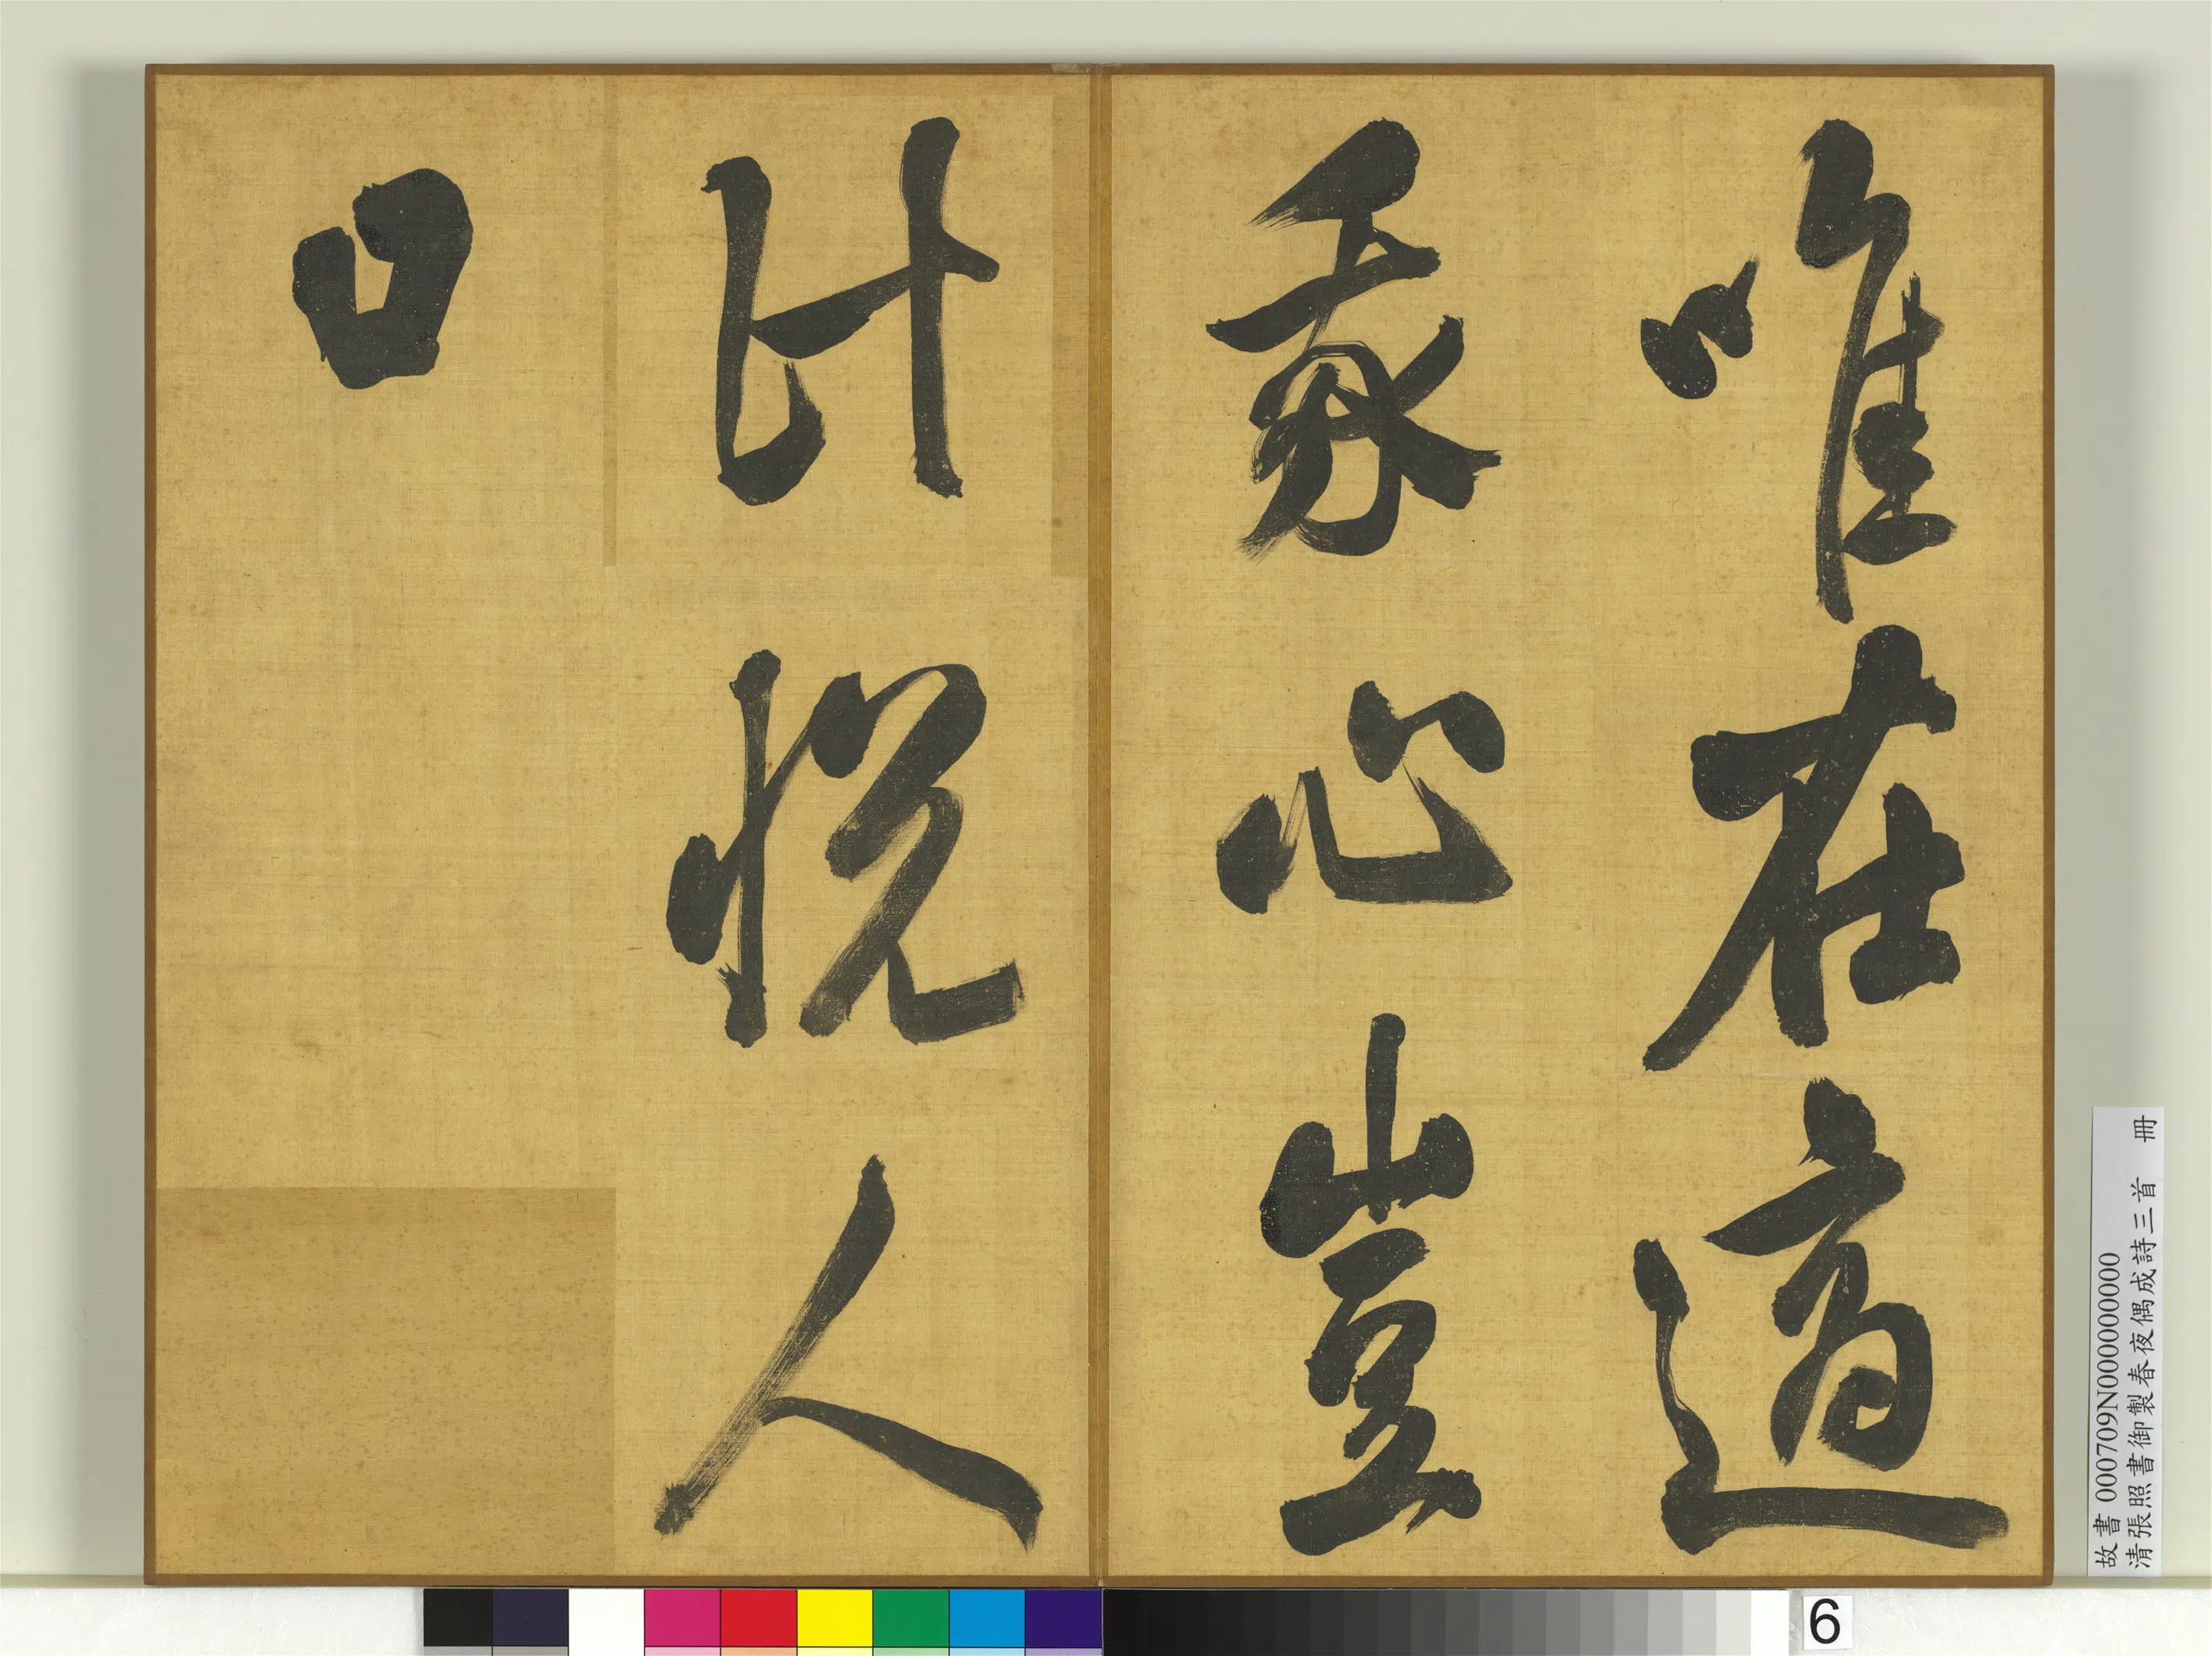 唯在適
我心豈
計悅人
口
故書 000709N000000000
清張照書御製春夜偶成詩三首 冊
6